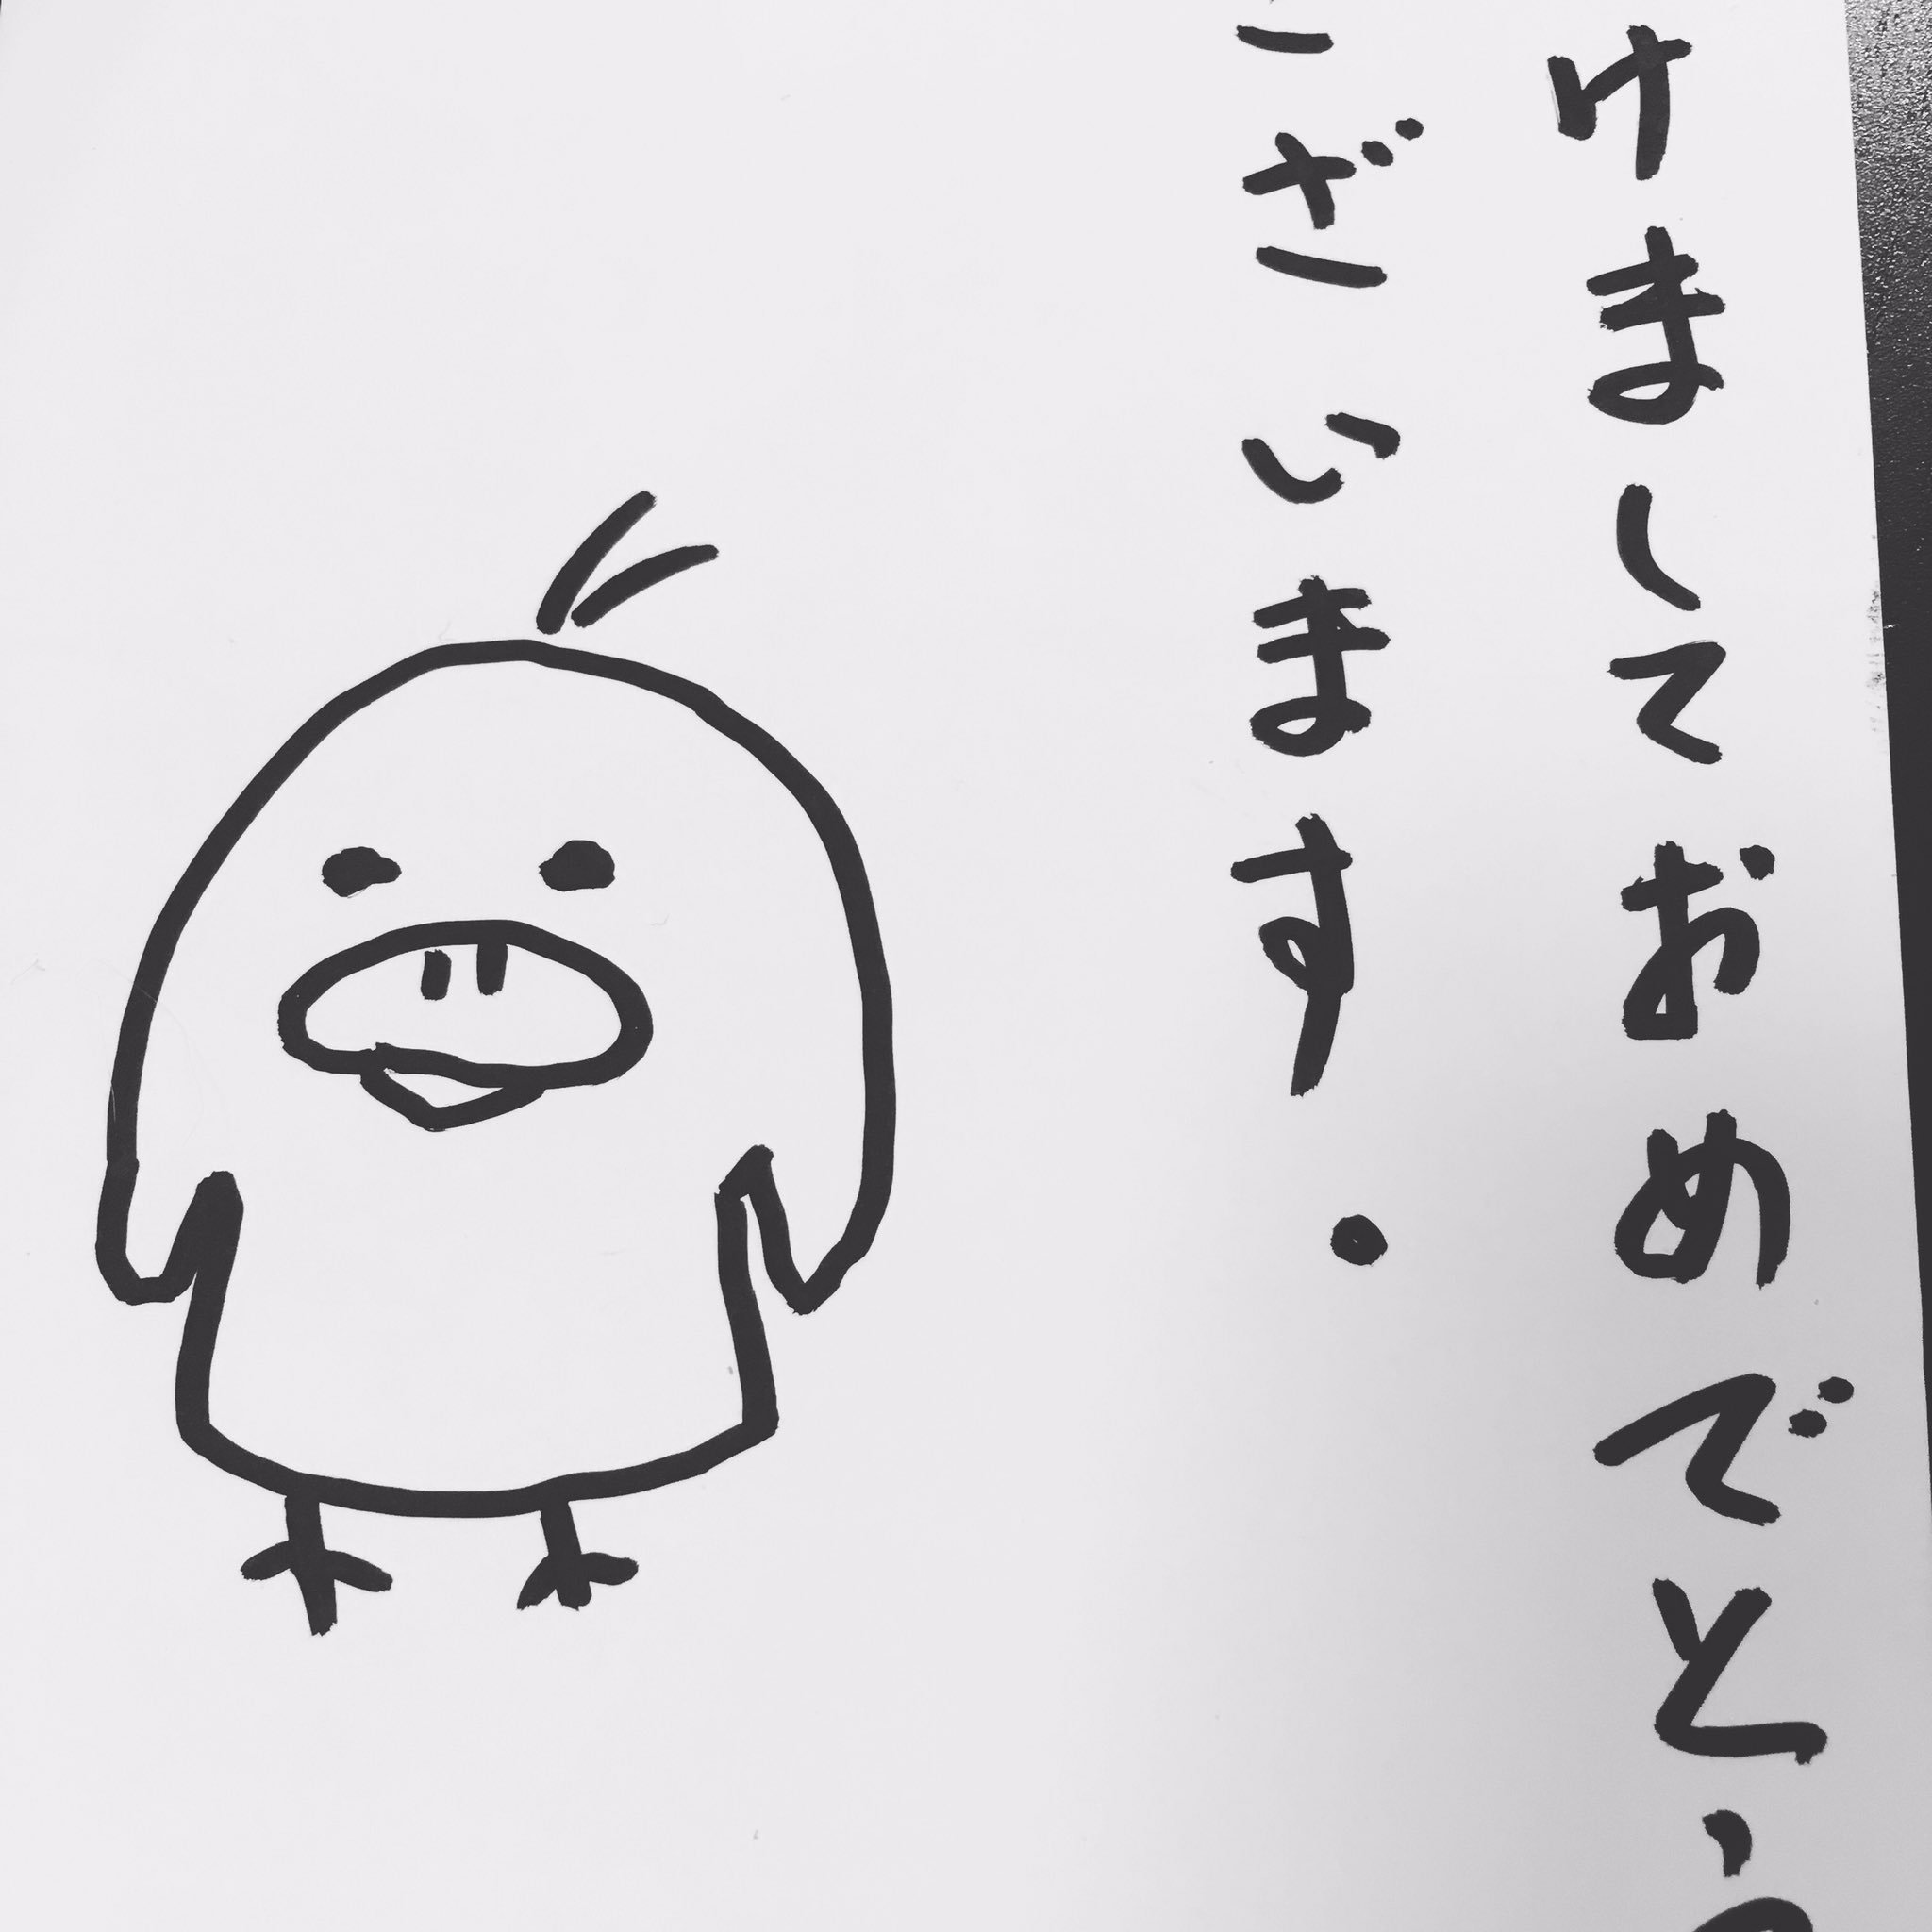 けましておめでとう
ございます.